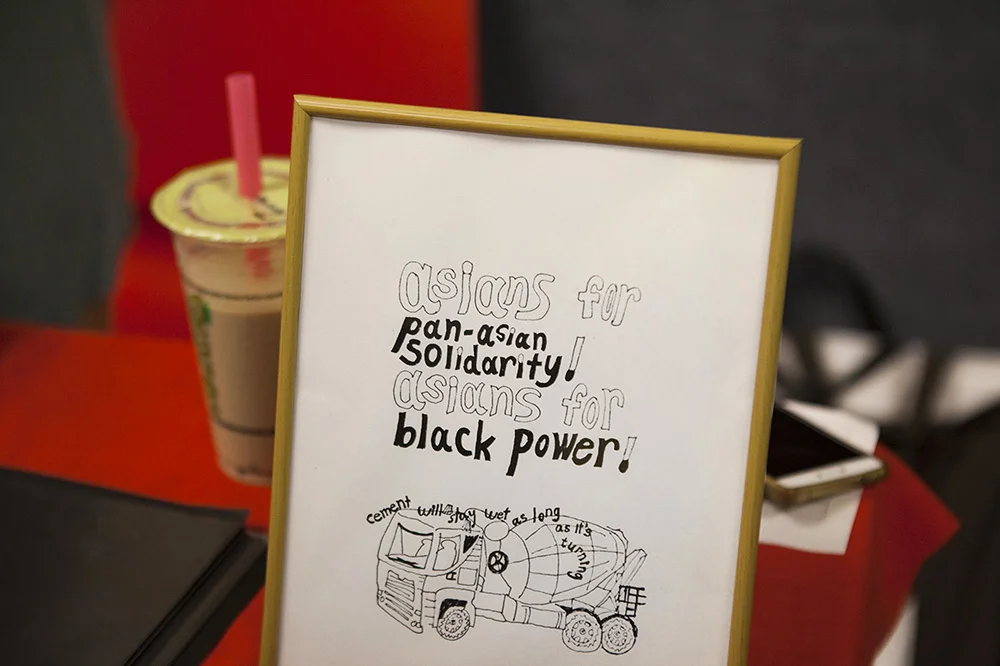 asians for
pan-asian
solidarity!
asians for
black power!
cement will stay wet as long
as it's
turning